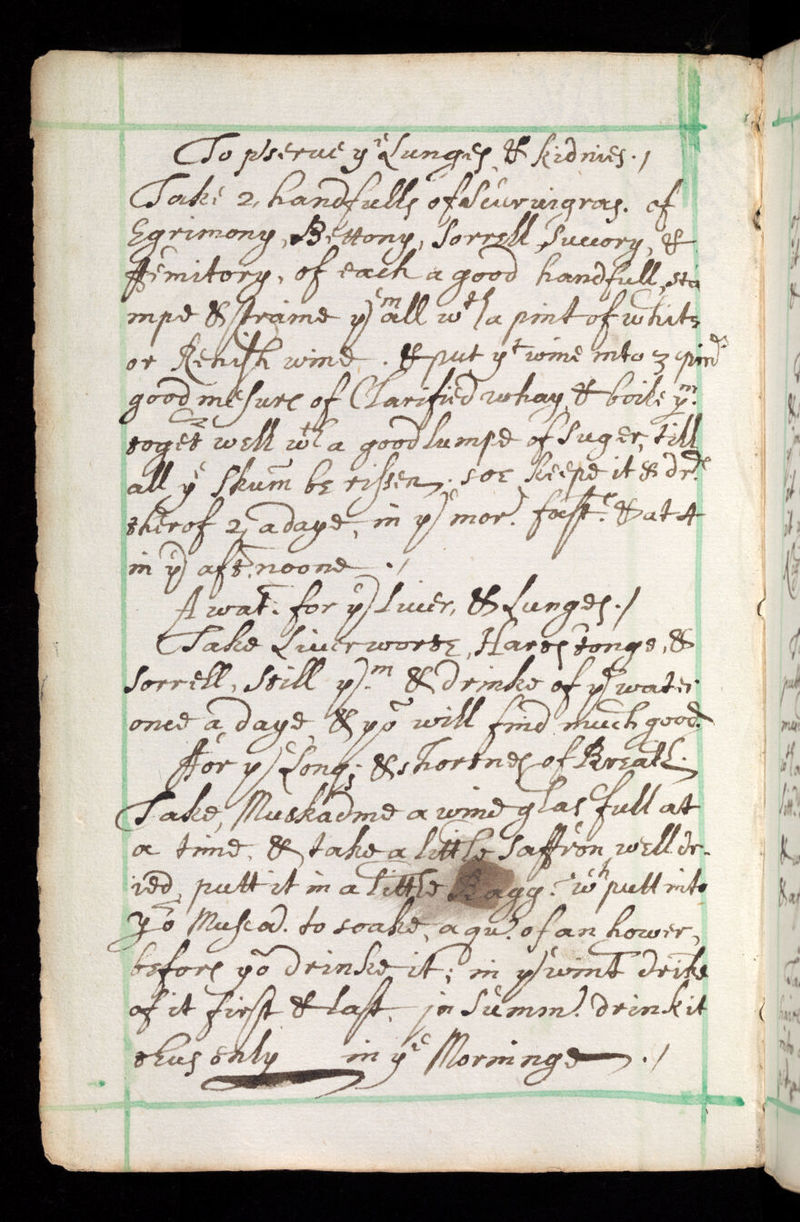 To p'serue yᵉ Lunges & kidnies ./
Take 2, handfulls of Scurvigras. of
Egrimony, Bettony, Sorrell, Succory, &
ffemitory, of each a good handfull, sta
mpe & straine yᵐ all wᵗʰ a pint of white
or Renish wine . & put yᵗ wine into 3 pints
good mesure of Clarified whay & boile yᵐ.
toget̄ well wᵗʰ a good lumpe of Suger, till
all yᵉ Skum be rissen . soe keepe it & dr:
therof 2, a daye, in yᵉ mor: fast: & at 4
in yᵉ aft̄noone ./
A wat̄: for yᵉ Liver, & Lunges ./
Take Liverworte, Harts tonge, &
Sorrell, Still yᵐ. & drinke of yᵉ water
once a daye, & yō will find much good.
ffor yᵉ Long: & shortnes of Breath.
Take, Muskadine a wine glas full at
a time, & take a little Saffron, well dr-
ied, putt it in a little Bagg: wʰ putt into
yō Muscad. to soake, a qu: of an hower,
before yō drinke it; in yᵉ wint̄ drike
of it first & last, jn Summ: drink it
thus only in yᵉ Morninge ./